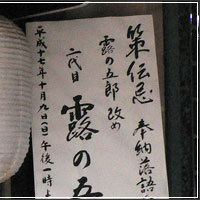 策伝忌 奉納落語
露の五郎 改め
二代目 露の五
平成十七年十月九日(日) 午後一時よ